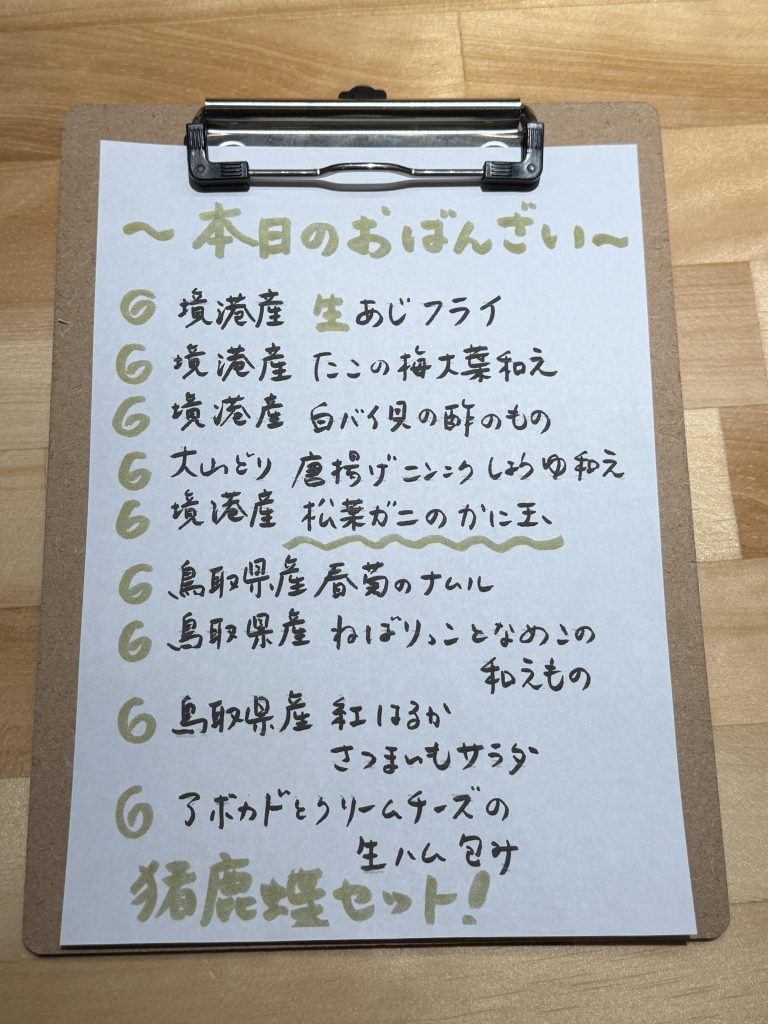 〜本日のおばんざい〜
境港産 生あじフライ
境港産 たこの梅大葉和え
境港産 白バイ貝の酢のもの
大山どり 唐揚げニンニクしょうゆ和え
境港産 松葉ガニのかに玉
鳥取県産 春菊のナムル
鳥取県産 ねばりっことなめこの
和えもの
鳥取県産 紅はるか
さつまいもサラダ
アボカドとクリームチーズの
生ハム包み
猪鹿蝶セット!